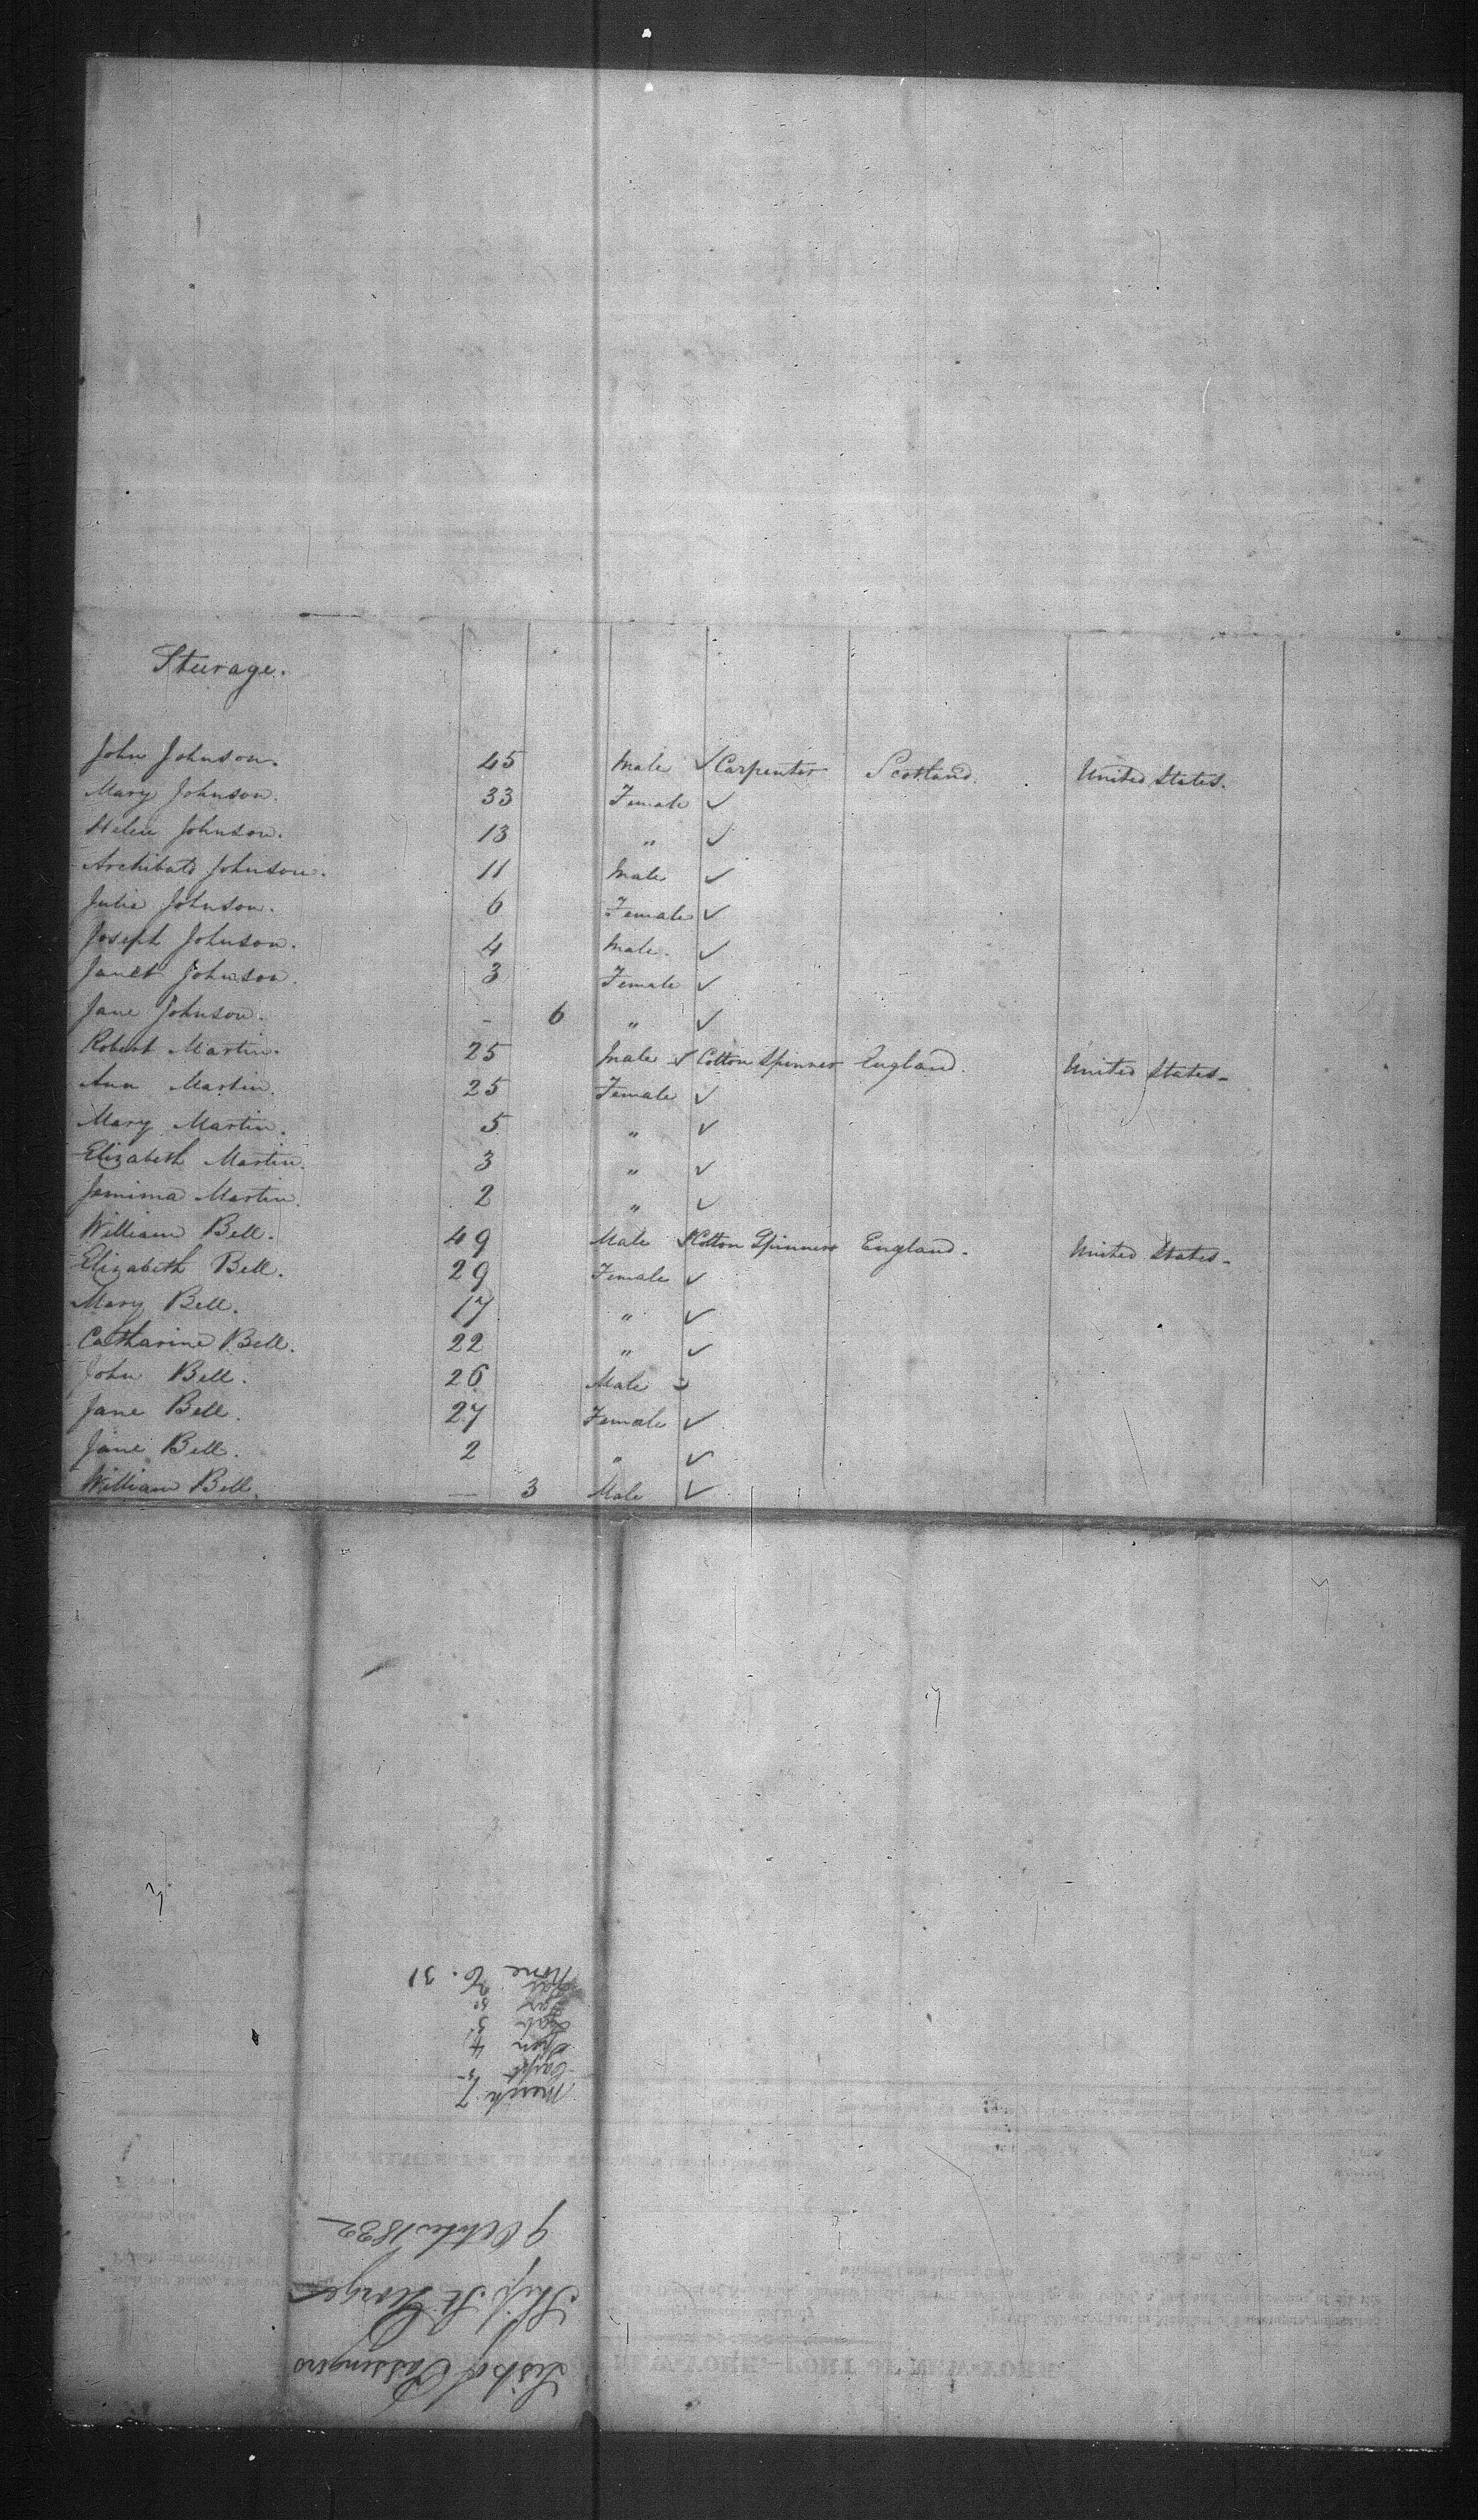 Steerage.
John Johnson. 45 Male ✓ Carpenter Scotland. United States.
Mary Johnson. 33 Female ✓
Helen Johnson. 13 " ✓
Archibald Johnson. 11 Male ✓
Julia Johnson. 6 Female ✓
Joseph Johnson. 4 Male. ✓
Janet Johnson. 3 Female ✓
Jane Johnson. - 6 " ✓
Robert Martin. 25 Male ✓ Cotton Spinner England. United States-
Ann Martin. 25 Female ✓
Mary Martin. 5 " ✓
Elizabeth Martin. 3 " ✓
Jemima Martin. 2 " ✓
William Bell. 49 Male ✓ Cotton Spinner England. United States-
Elizabeth Bell. 29 Female ✓
Mary Bell. 17 " ✓
Catharine Bell. 22 " ✓
John Bell. 26 Male ✓
Jane Bell. 27 Female ✓
Jane Bell. 2 " ✓
William Bell. — 3 Male ✓
List of Passengers
Ship St George
9 October 1832
Merch 7
Carpt
Spin 4
Lab 3
None 31